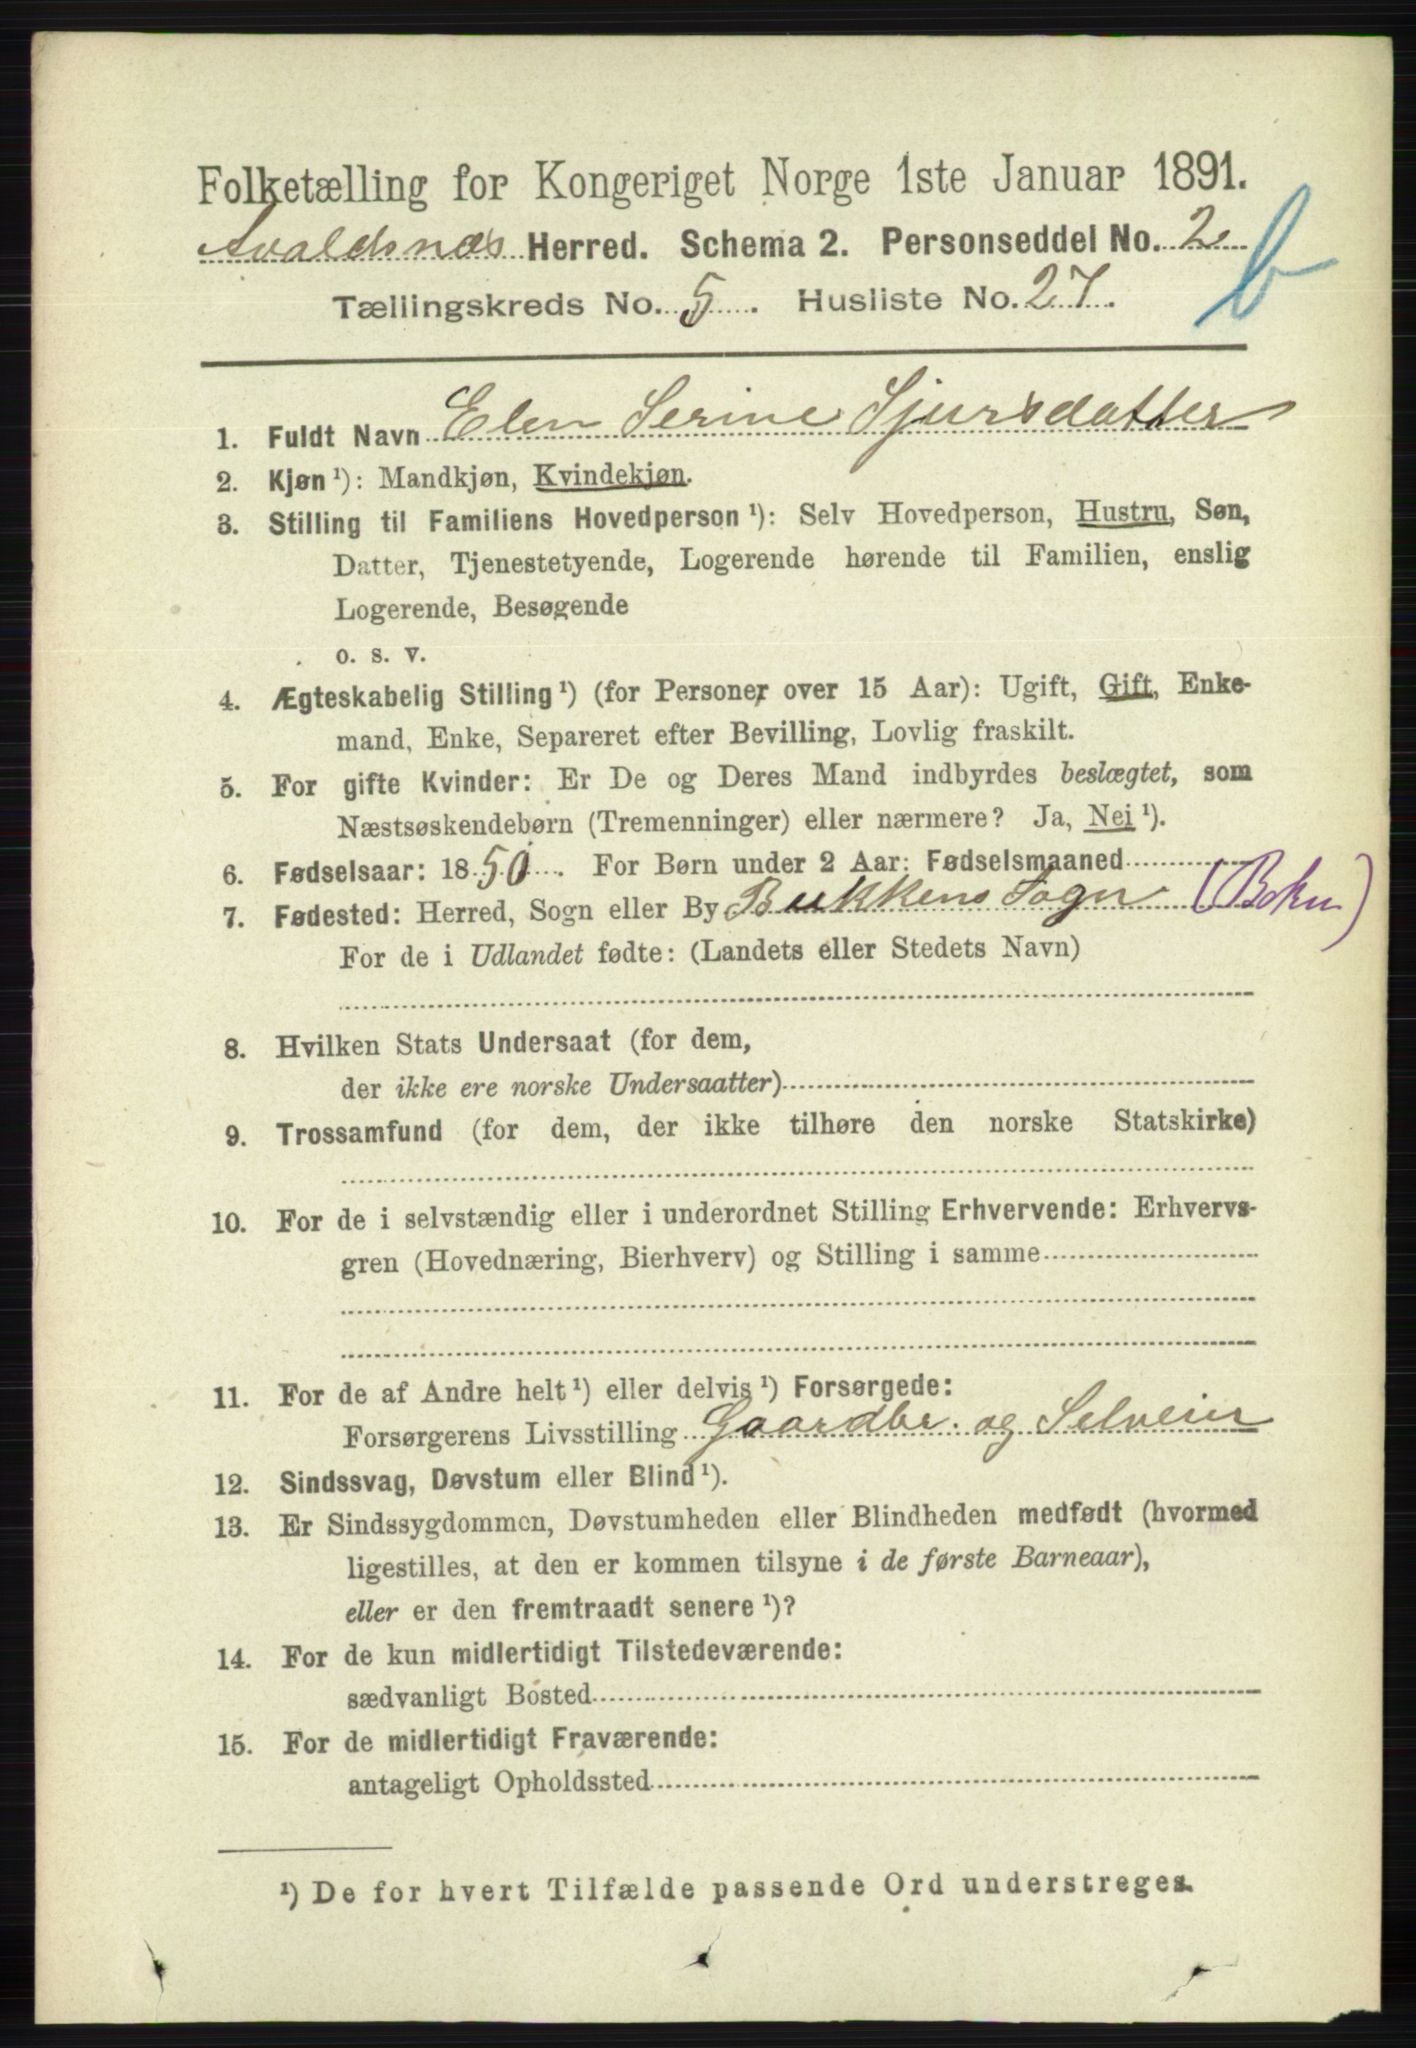 Folketælling for Kongeriget Norge 1ste Januar 1891.
Avaldsnæs Herred. Schema 2. Personseddel No. 2
b
Tællingskreds No. 5. Husliste No. 27.
1. Fuldt Navn Elen Serine Sjursdatter
2. Kjøn ¹): Mandkjøn, Kvindekjøn.
3. Stilling til Familiens Hovedperson ¹): Selv Hovedperson, Hustru, Søn,
Datter, Tjenestetyende, Logerende hørende til Familien, enslig
Logerende, Besøgende
o. s. v.
4. Ægteskabelig Stilling ¹) (for Personer over 15 Aar): Ugift, Gift, Enke-
mand, Enke, Separeret efter Bevilling, Lovlig fraskilt.
5. For gifte Kvinder: Er De og Deres Mand indbyrdes beslægtet, som
Næstsøskendebørn (Tremenninger) eller nærmere? Ja, Nei ¹).
6. Fødselsaar: 1850. For Børn under 2 Aar: Fødselsmaaned
7. Fødested: Herred, Sogn eller By Bukkens Sogn (Bokn)
For de i Udlandet fødte: (Landets eller Stedets Navn)
8. Hvilken Stats Undersaat (for dem,
der ikke ere norske Undersaatter)
9. Trossamfund (for dem, der ikke tilhøre den norske Statskirke)
10. For de i selvstændig eller i underordnet Stilling Erhvervende: Erhvervs-
gren (Hovednæring, Bierhverv) og Stilling i samme
11. For de af Andre helt ¹) eller delvis ¹) Forsørgede:
Forsørgerens Livsstilling Gaardbr. og Selveier
12. Sindssvag, Døvstum eller Blind ¹).
13. Er Sindssygdommen, Døvstumheden eller Blindheden medfødt (hvormed
ligestilles, at den er kommen tilsyne i de første Barneaar),
eller er den fremtraadt senere ¹)?
14. For de kun midlertidigt Tilstedeværende:
sædvanligt Bosted
15. For de midlertidigt Fraværende:
antageligt Opholdssted
¹) De for hvert Tilfælde passende Ord understreges.